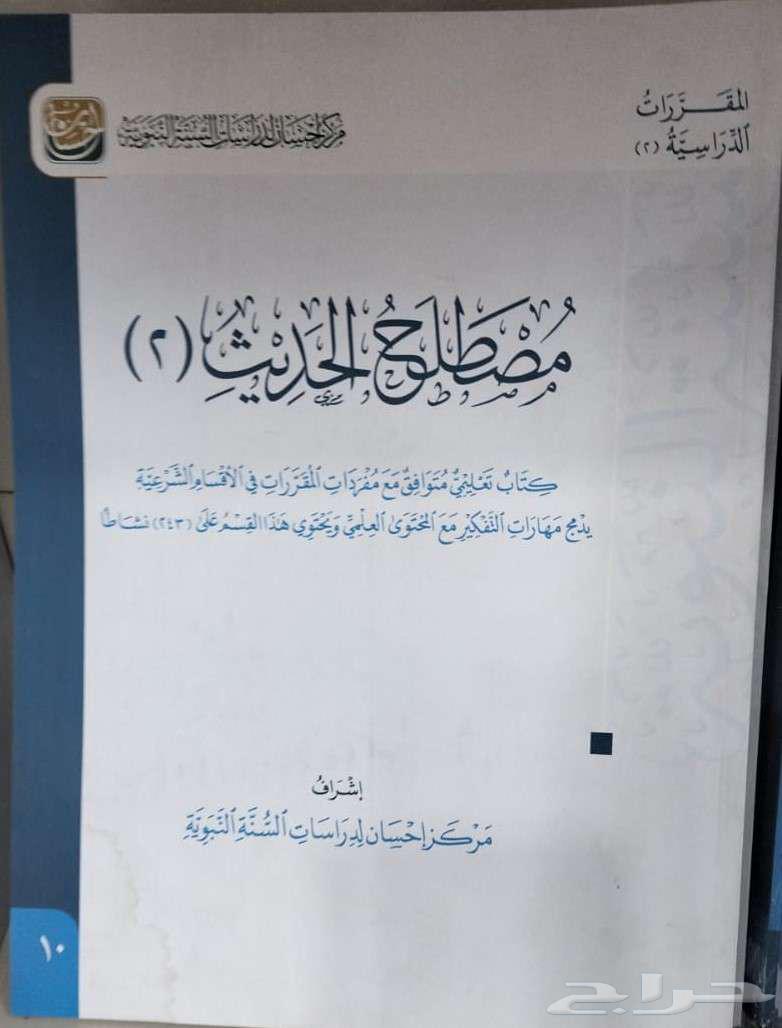 المقَــرَّرَاتُ
الدِّرَاسِيَّةُ (٢)
مركز إحسان لدراسات السنة النبوية
إحسان
مُصْطَلَحُ الحَدِيْثِ (٢)
كِتَابٌ تَعْلِيْمِيٌّ مُتَوَافِقٌ مَعَ مُفْرَدَاتِ المُقَرَّرَاتِ فِي الأَقْسَامِ الشَّرْعِيَّةِ
يدْمجُ مَهَارَاتِ التَّفْكِيْرِ مَعَ المُحْتَوَىٰ العِلْمِيِّ وَيَحْتَوِي هَذَا القِسْمُ عَلَىٰ (٢٤٣) نشَاطًا
إشْرَافُ
مَرْكَز إحْسَان لِدِرَاسَاتِ السُّنَّةِ النَّبَوِيَّةِ
١٠
حراج